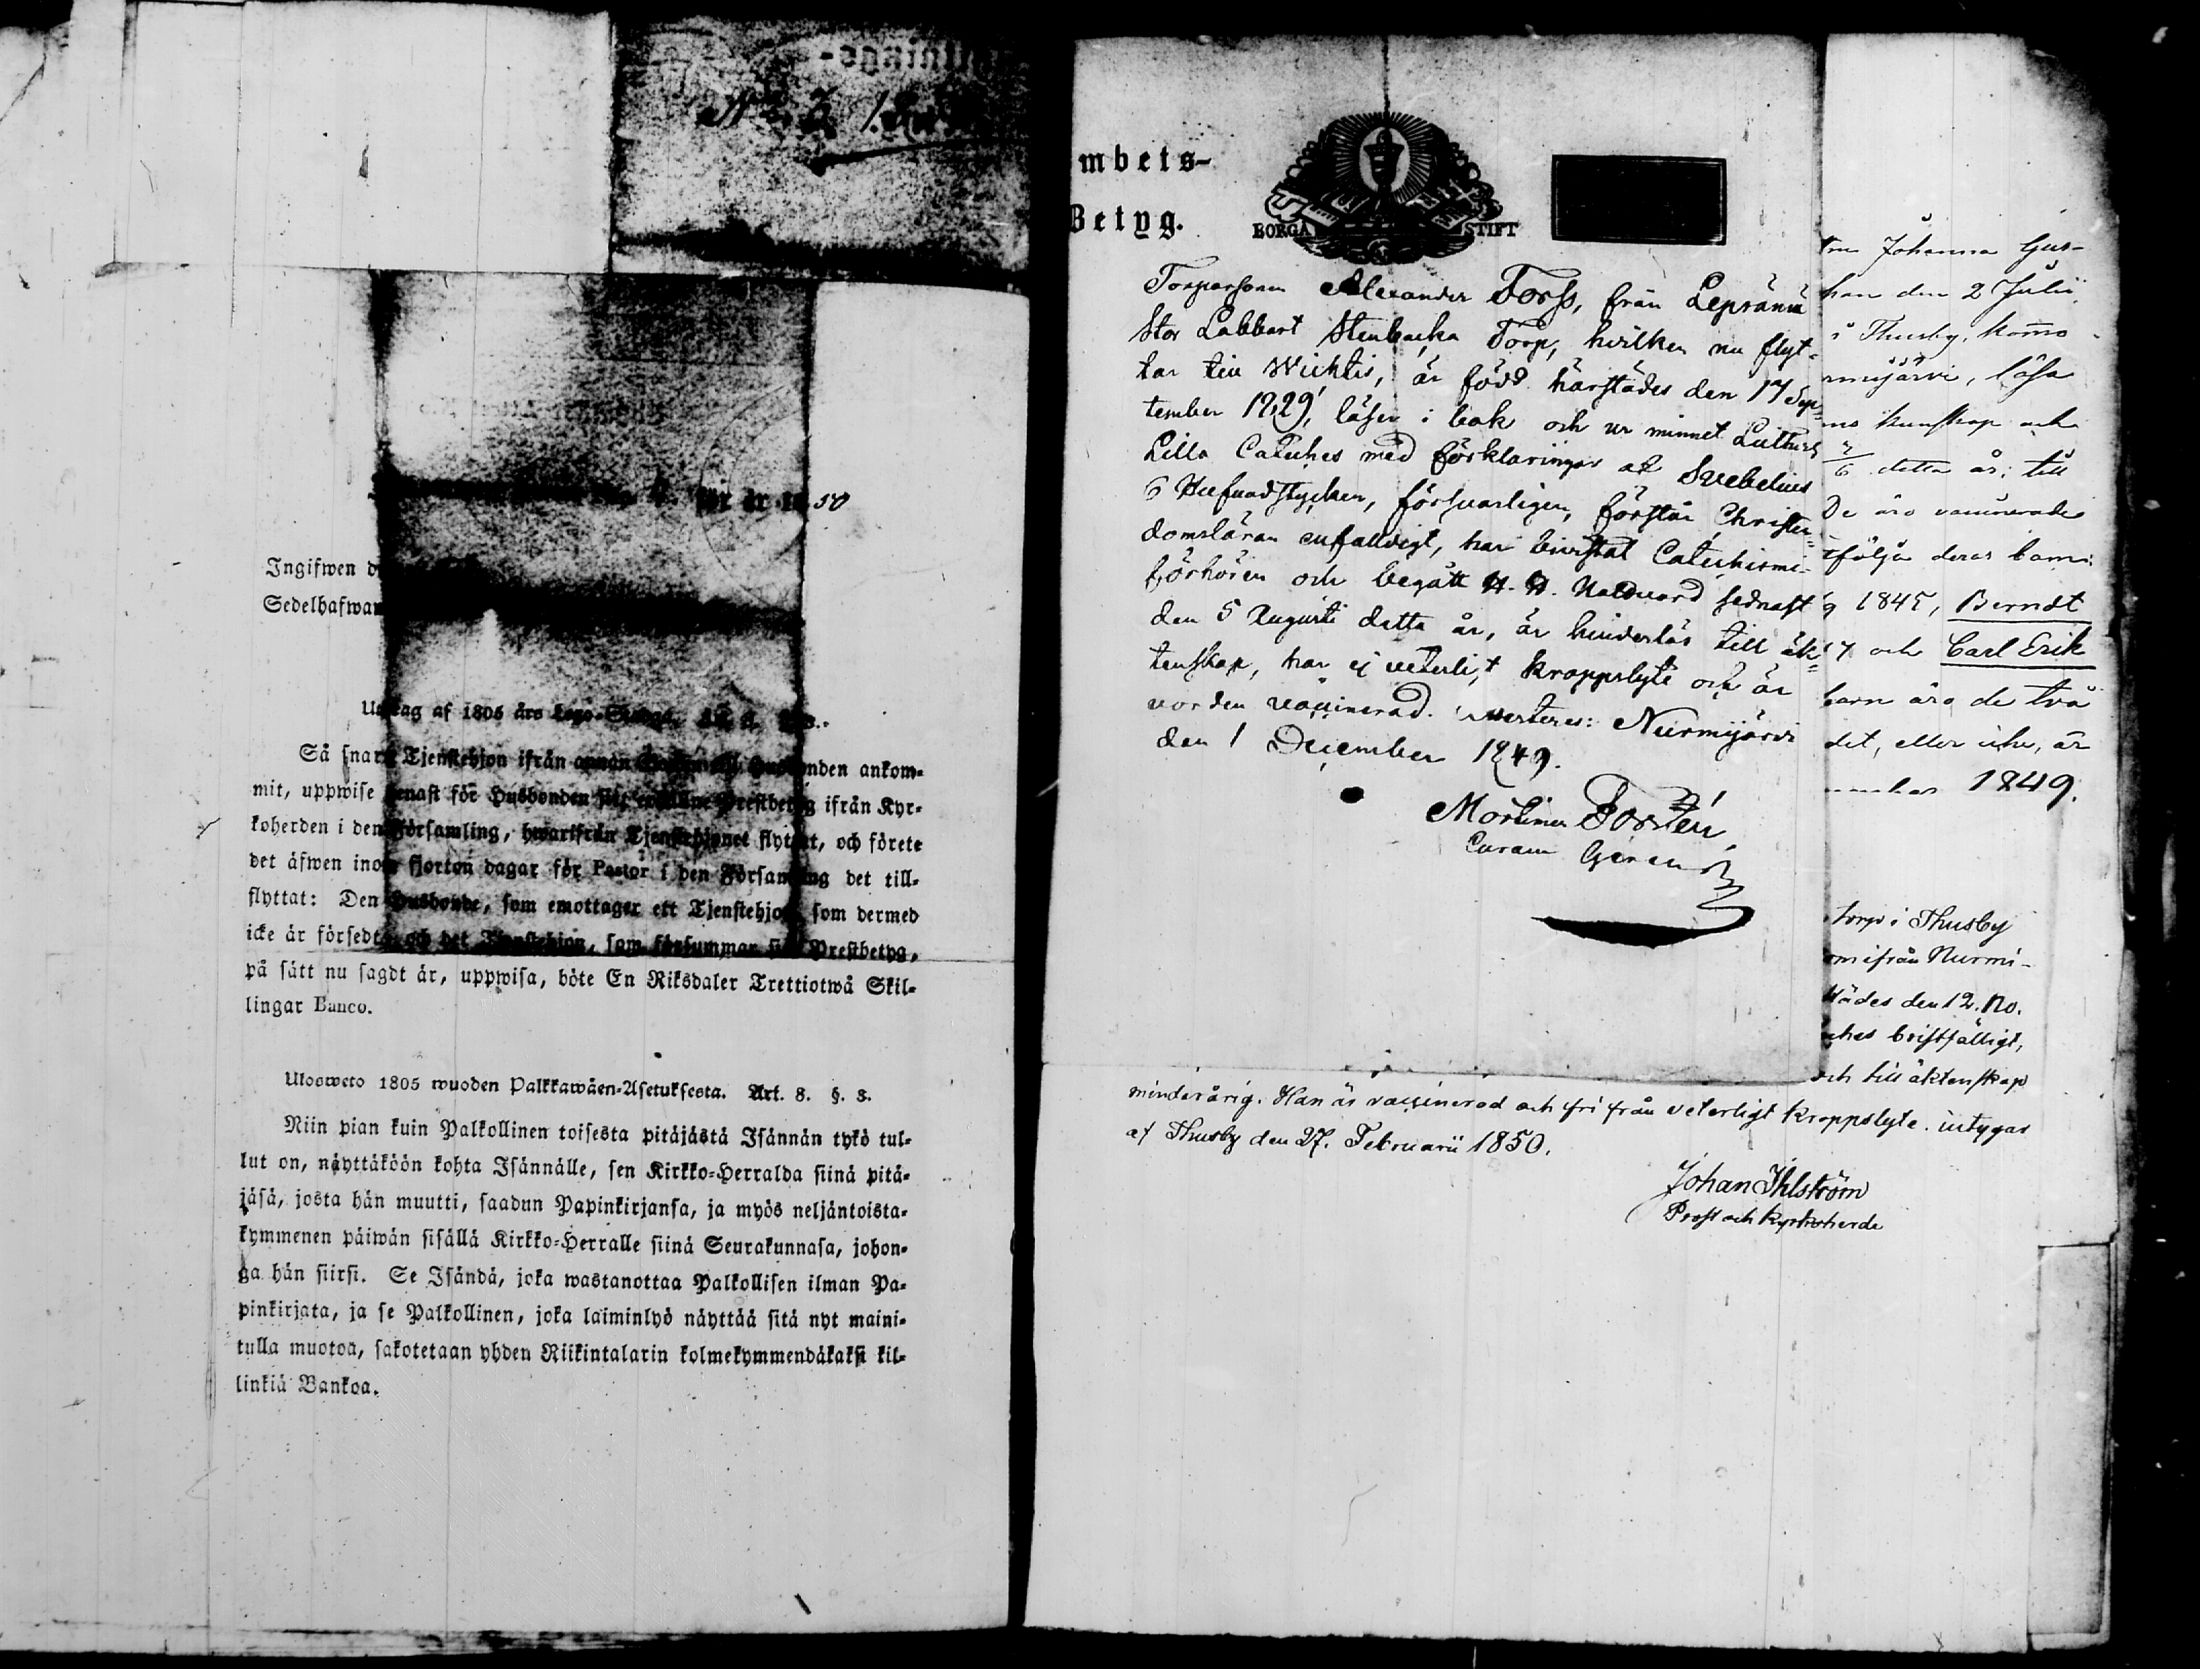 för år 1850
Ingifwen d
Sedelhafwan
Utdrag af 1805 års Lego-Stadga.
Så snart Tjenstehjon ifrån annan nden ankom-
mit, uppwise genast för Husbonden sitt Prestbetyg ifrån Kyr-
koherden i den Församling, hwarifrån Tjenstehjonet flyttat, och förete
det äfwen inom fjorton dagar för Pastor i den Församling det till-
flyttat: Den Husbonde, som emottager ett Tjenstehjon, som dermed
icke är försedt, och det Tjenstehjon, som försummar sitt Prestbetyg,
på sätt nu sagdt är, uppwisa, böte En Riksdaler Trettiotwå Skil-
lingar Banco.
Uloosweto 1805 wuoden Palkkawäen-Asetuksesta. Art. 8. §. 3.
Niin pian kuin Palkollinen toisesta pitäjästä Isännän tykö tul-
lut on, näyttäköön kohta Isännälle, sen Kirkko-Herralda siinä pitä-
jäsä, josta hän muutti, saadun Papinkirjansa, ja myös neljäntoista-
kymmenen päiwän sisällä Kirkko-Herralle siinä Seurakunnasa, johon-
ga hän siirsi. Se Isändä, joka wastanottaa Palkollisen ilman Pa-
pinkirjata, ja se Palkollinen, joka laiminlyö näyttää sitä nyt maini-
tulla muotoa, sakotetaan yhden Riikintalarin kolmekymmendäkaksi kil-
linkiä Bankoa.
mbets-
Betyg.
BORGÅ STIFT
Torparsonen Alexander Forss, från Lepränä
Stor Labbart Stenbacka Torp, hvilken nu flyt-
tar till Wichtis, är född härstädes den 17 Sep-
tember 1829, läser i bok och ur minnet Luthers
Lilla Cateches med förklaringar af Svebelius
6 Hufvudstycken, försvarligen, förstår Christen-
domsläran enfaldigt, har bivistat Catechismi-
förhören och begått H. H. Nattvard sednast
den 5 Augusti detta år, är hinderlös till äk-
tenskap, har ej veterligt kroppslyte och är
vorden vaccinerad. Nurmijärvi
den 1 December 1849.
Mortimer Forstén,
Curam Gerens
tru Johanna Gus-
han den 2 Julii
i Thusby, komo
rmijärvi, läsa
ns kunskap och
detta år; till
De äro vaccinerade
tfölja deras barn:
g 1845, Berndt
47 och Carl Erik
barn äro de två
det, eller icke, är
1849.
torp i Thusby
om ifrån Nurmi-
städes den 12. No.
ches bristfälligt,
och till äktenskap
minderårig. Han är vaccinerad och fri från veterligt kroppslyte. intygar
af Thusby den 27. Februarii 1850.
Johan Ihlström
Prost och Kyrkoherde